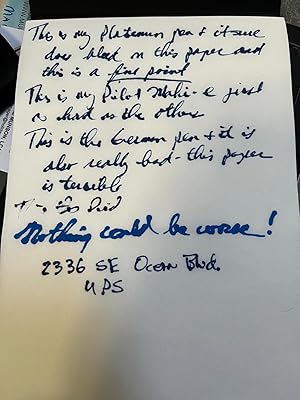 This is my Platinum pen & it sure
does bleed on this paper and
this is a fine point
This is my Pilot Metro-e just
as hard as the others
This is the German pen & it is
also really bad - this paper
is terrible
Nothing could be worse!
2336 SE Ocean Blvd.
UPS